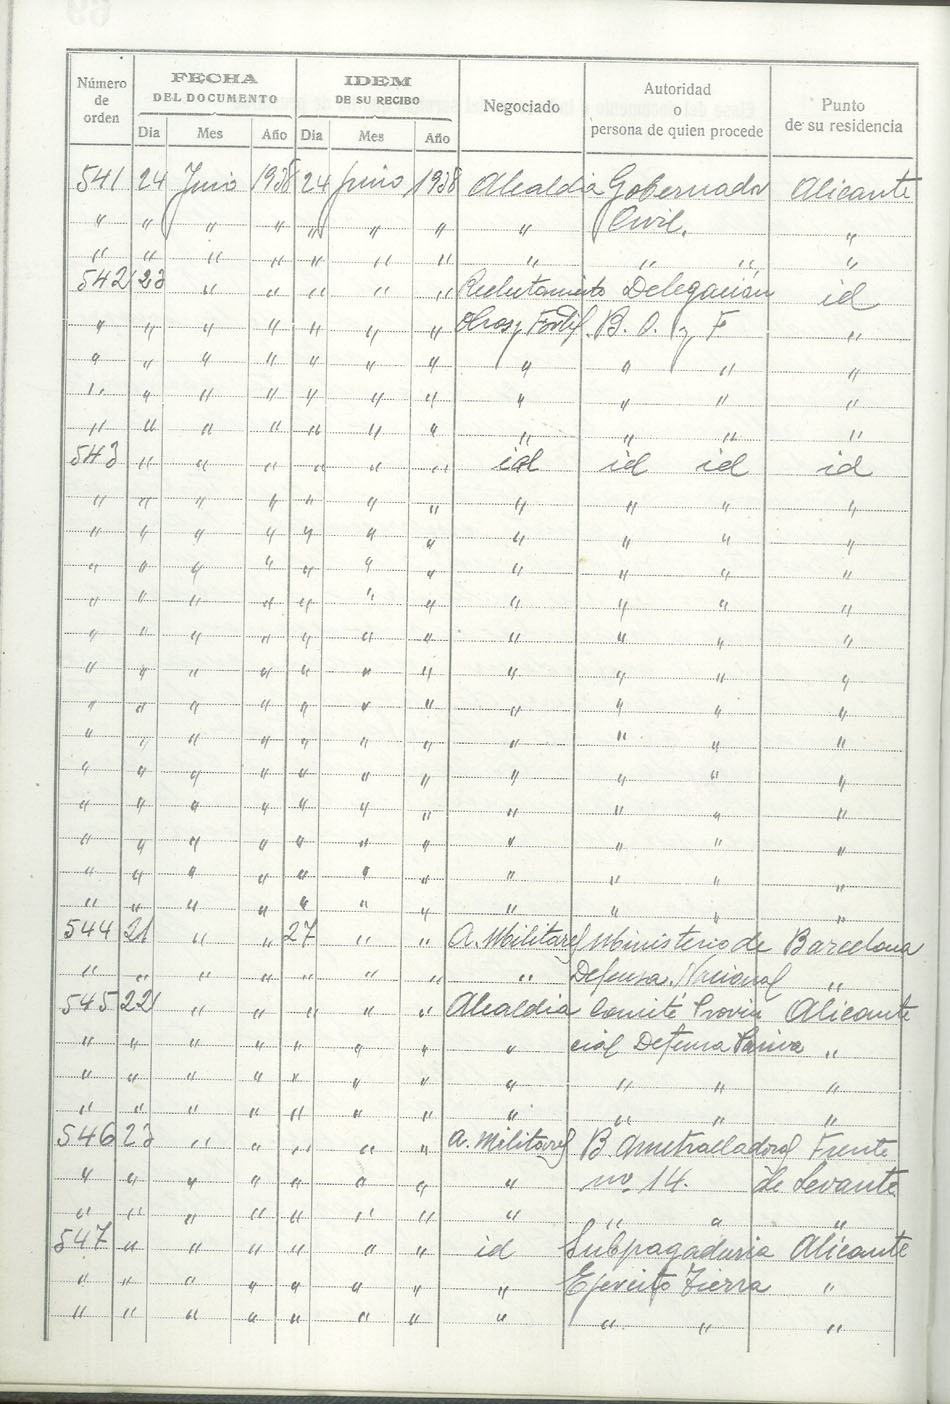 Número de orden | FECHA DEL DOCUMENTO | IDEM DE SU RECIBO | Negociado | Autoridad o persona de quien procede | Punto de su residencia
Dia | Mes | Año | Dia | Mes | Año
541 24 Junio 1938 24 Junio 1938 Alcaldia Gobernador Alicante
" " " " " " " " Civil. "
" " " " " " " " " " "
542 23 " " " " " Reclutamiento Delegación id
" " " " " " " Obras y Fortif. B. O. y F. "
" " " " " " " " " " "
" " " " " " " " " " "
" " " " " " " " " " "
543 " " " " " " id id id id
" " " " " " " " " " "
" " " " " " " " " " "
" " " " " " " " " " "
" " " " " " " " " " "
" " " " " " " " " " "
" " " " " " " " " " "
" " " " " " " " " " "
" " " " " " " " " " "
" " " " " " " " " " "
" " " " " " " " " " "
" " " " " " " " " " "
" " " " " " " " " " "
" " " " " " " " " " "
544 21 " " 27 " " A. Militares Ministerio de Barcelona
" " " " " " " " Defensa Nacional "
545 22 " " " " " Alcaldia Comité Provin Alicante
" " " " " " " " cial Defensa Pasiva "
" " " " " " " " " " "
" " " " " " " " " " "
546 23 " " " " " A. Militares B. Ametralladoras Frente
" " " " " " " " nº 14. de Levante
" " " " " " " " " " "
547 " " " " " " id Subpagaduria Alicante
" " " " " " " " Ejército Tierra "
" " " " " " " " " " "